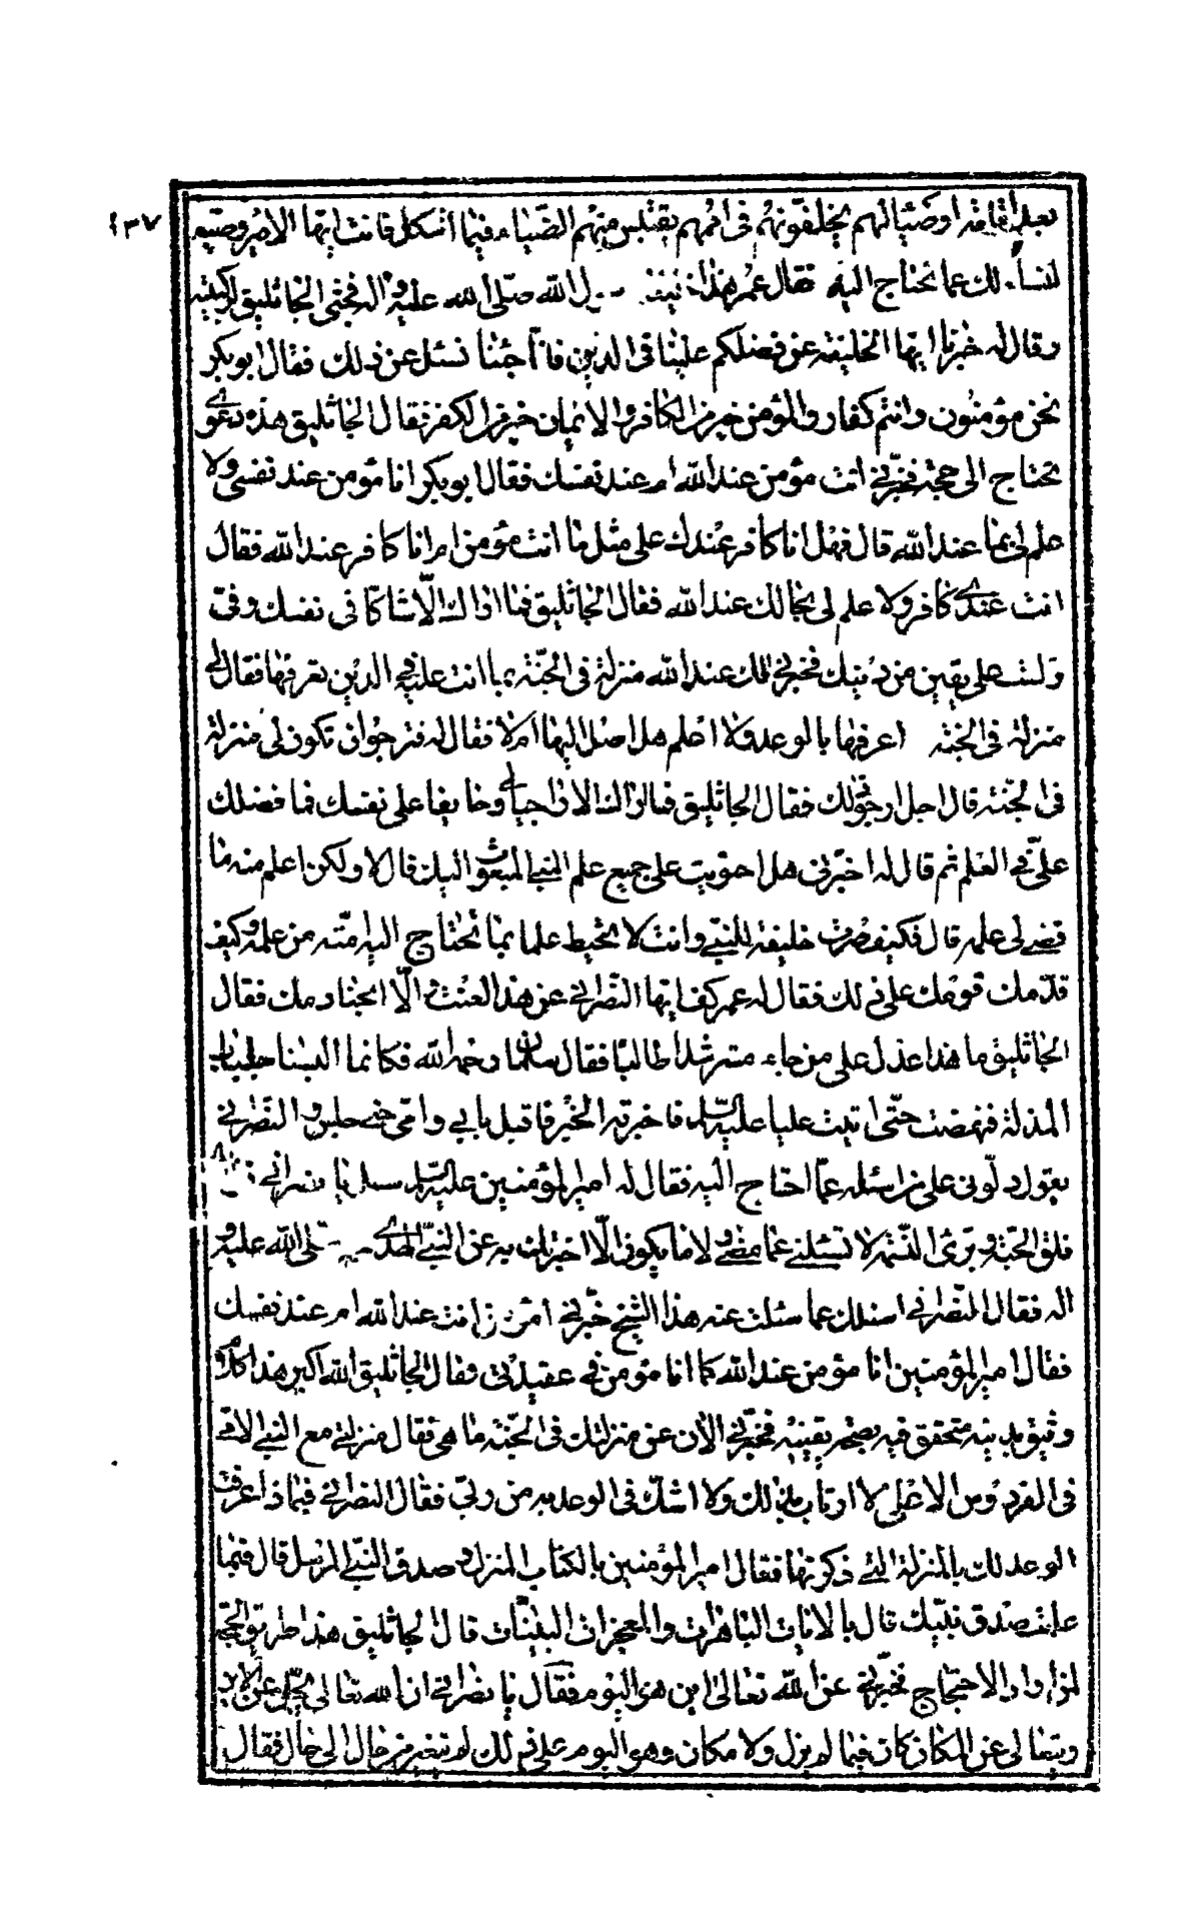 ٤٣٧
بعد اقامة اوصيائهم يخلفونهم في اممهم يقتبس منهم الضياء فيما اشكل فانت ايها الامير وصيه
لنسألك عما نحتاج اليه فقال عمر هذا الله صلى الله عليه واله فجثى الجاثليق لركبتيه
وقال له خبرنا ايها الخليفة عن فضلكم علينا في الدين فانا جئنا نسئل عن ذلك فقال ابو بكر
نحن مؤمنون وانتم كفار والمؤمن خير من الكافر والايمان خير من الكفر فقال الجاثليق هذه دعوى
يحتاج الى حجة فخبرني انت مؤمن عند الله ام عند نفسك فقال ابو بكر انا مؤمن عند نفسي ولا
علم لي بما عند الله قال فهل انا كافر عندك على مثل ما انت مؤمن ام انا كافر عند الله فقال
انت عندي كافر ولا علم لي بحالك عند الله فقال الجاثليق فما اراك الا شاكا في نفسك وفي
ولست على يقين من دينك فخبرني الك عند الله منزلة في الجنة بما انت عليه في الدين تعرفها فقال لي
منزلة في الجنة اعرفها بالوعد ولا اعلم هل اصل اليها ام لا فقال له فترجو ان تكون لي منزلة
في الجنة قال اجل ارجو لك فقال الجاثليق فما اراك الا راجيا لي وخايفا على نفسك فما فضلك
علي في العلم ثم قال له اخبرني هل احتويت على جميع علم النبي المبعوث اليك قال لا ولكن اعلم منه ما
قضي لي علمه قال فكيف صرت خليفة للنبي وانت لا تحيط علما بما تحتاج اليه امته من علمه وكيف
قدمك قومك على ذلك فقال له عمر كف ايها النصراني عن هذا العنت والا ابحنا دمك فقال
الجاثليق ما هذا عدل على من جاء مسترشدا طالبا فقال سلمان رحمه الله فكانما البسنا جلباب
المذلة فنهضت حتى اتيت عليا عليه السلم فاخبرته الخبر فاقبل بابي وامي حتى جلس والنصراني
يقول دلوني على من اسئله عما احتاج اليه فقال له امير المؤمنين عليه السلم سل يا نصراني
فلق الحبة وبرئ النسمة لا تسئلني عما مضى ولا ما يكون الا اخبرتك به عن النبي الهدى صلى الله عليه و
اله فقال النصراني اسئلك عما سئلت عنه هذا الشيخ خبرني امؤمن انت عند الله ام عند نفسك
فقال امير المؤمنين انا مؤمن عند الله كما انا مؤمن في عقيدتي فقال الجاثليق الله اكبر هذا كلام
وثيق بدينه متحقق فيه بصحة يقينه فخبرني الان عن منزلتك في الجنة ما هي فقال منزلتي مع النبي الامي
في الفردوس الاعلى لا ارتاب بذلك ولا اشك في الوعد به من ربي فقال النصراني فبماذا عرفت
الوعد لك بالمنزلة التي ذكرتها فقال امير المؤمنين بالكتاب المنزل وصدق النبي المرسل قال فبما
علمت صدق نبيك قال بالايات الباهرات والمعجزات البينات قال الجاثليق هذا طريق الحجة
لمن اراد الاحتجاج فخبرني عن الله تعالى اين هو اليوم فقال يا نصراني ان الله تعالى يجل عن الاين
ويتعالى عن المكان كان فيما لم يزل ولا مكان وهو اليوم على ذلك لم يتغير من حال الى حال فقال